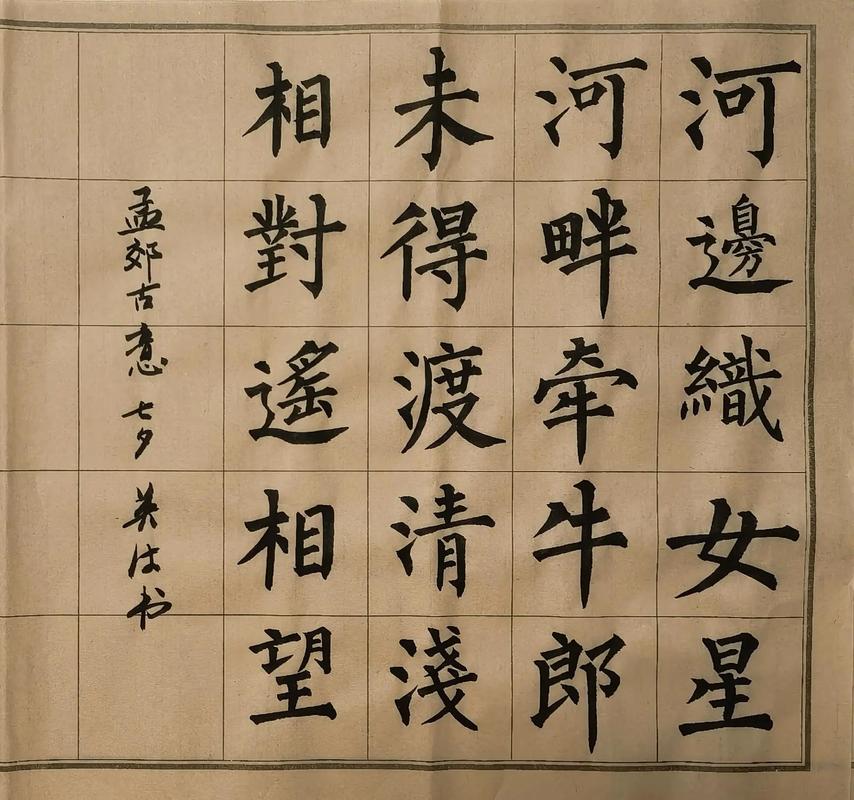 河邊織女星
河畔牽牛郎
未得渡清淺
相對遙相望
孟郊古意 七夕 英 书